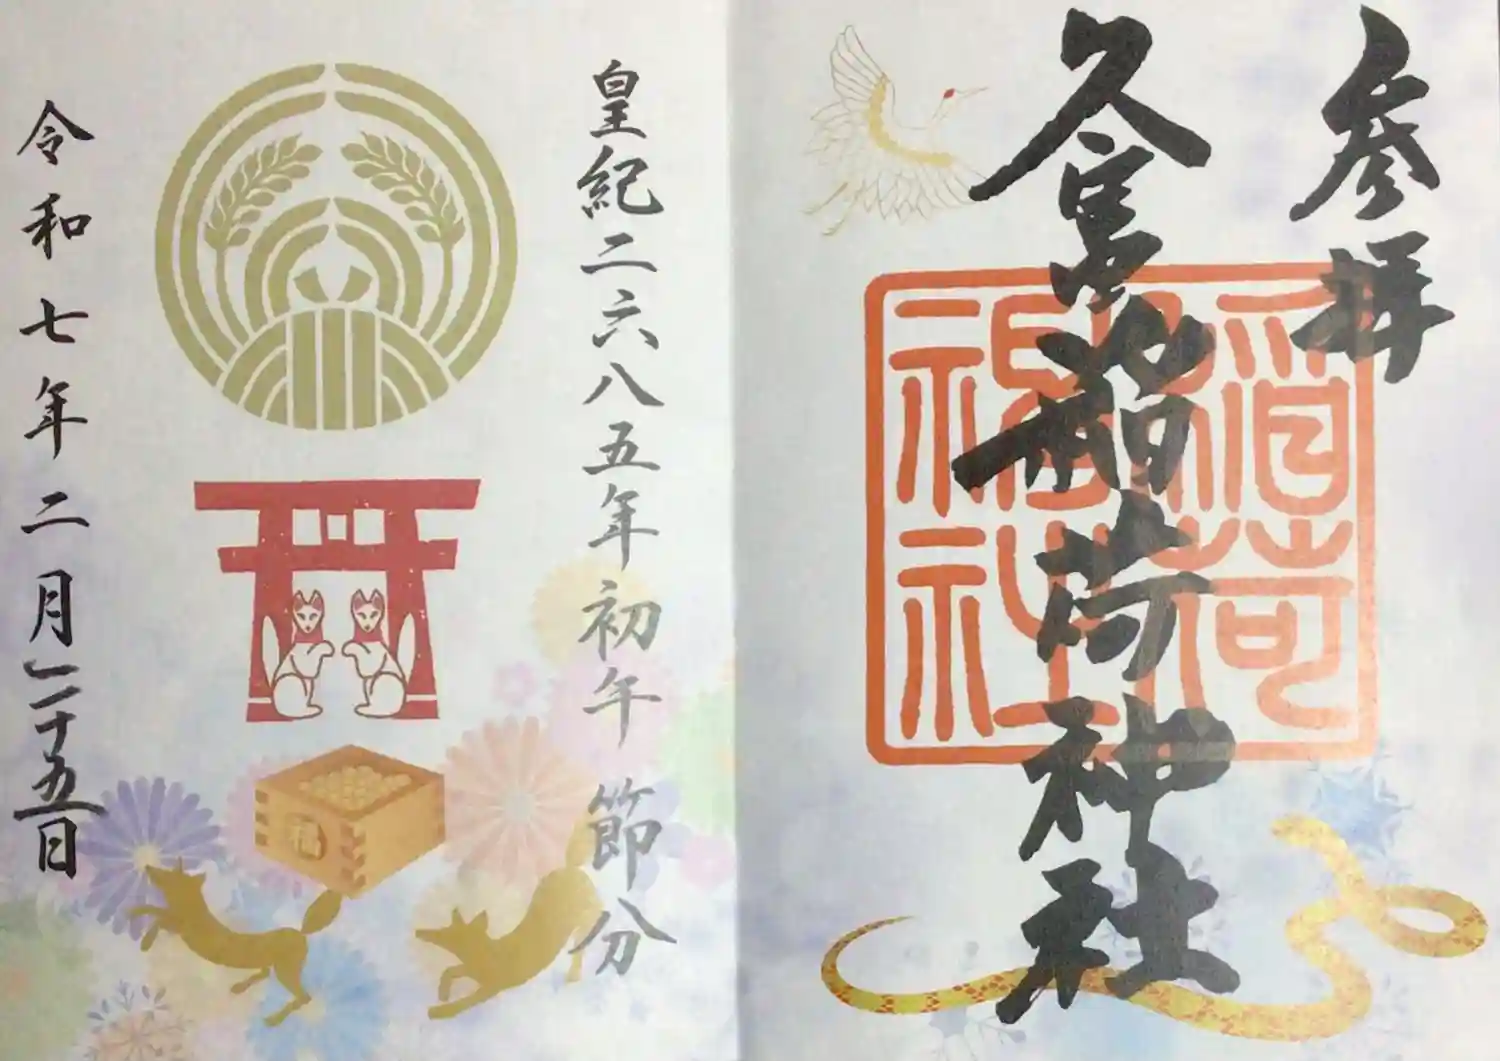 参拝
久宮稲荷神社
稲荷
神社
皇紀二六八五年初午 節分
福
令和七年二月二十五日